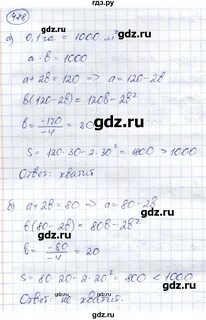 428
а) 0,1 га = 1000 м²
a · b = 1000
a+2b = 120 => a = 120-2b
b(120-2b) = 120b-2b²
b = -120/-4 = 30
S = 120·30-2·30² = 1800 > 1000
Ответ: хватит
б) a+2b = 80 => a = 80-2b
b(80-2b) = 80b-2b²
b = -80/-4 = 20
S = 80·20-2·20² = 800 < 1000
Ответ: не хватит.